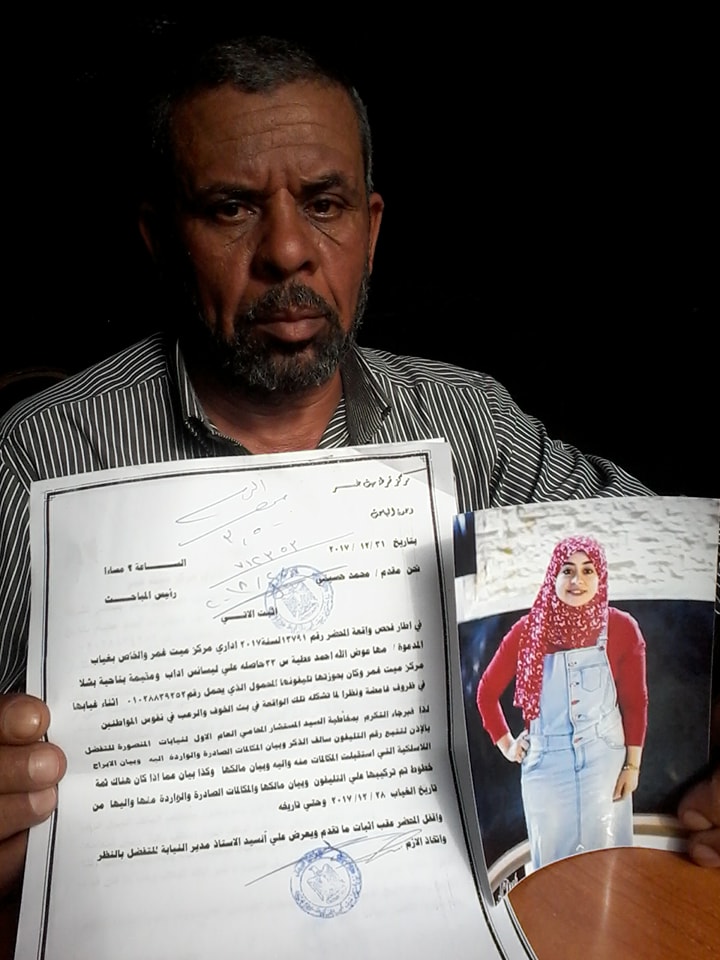 مركز شرطة ميت غمر
وحدة المباحث
بتاريخ ٢٠١٧/١٢/٣١ الساعة ٢ مساءا
نحن مقدم / محمد حسيني رئيس المباحث
أثبت الاتي
في اطار فحص واقعة المحضر رقم ١٣٧٩١ لسنة ٢٠١٧ اداري مركز ميت غمر والخاص بغياب
المدعوة / مها عوض الله احمد عطية س ٢٢ حاصله علي ليسانس اداب ومقيمة بناحية بشلا
مركز ميت غمر وكان بحوزتها تليفونها المحمول الذي يحمل رقم اثناء غيابها
في ظروف غامضة ونظرا لما تشكله تلك الواقعة في بث الخوف والرعب في نفوس المواطنين
لذا فبرجاء التكرم بمخاطبة السيد المستشار المحامي العام الاول لنيابات المنصورة للتفضل
بالإذن لتتبع رقم التليفون سالف الذكر وبيان المكالمات الصادرة والواردة اليه وبيان الابراج
اللاسلكية التي استقبلت المكالمات منه واليه وبيان مالكها وكذا بيان عما اذا كان هناك ثمة
خطوط تم تركيبها علي التليفون وبيان مالكها والمكالمات الصادرة والواردة منها واليها من
تاريخ الغياب ٢٠١٧/١٢/٢٨ وحتي تاريخه
واقفل المحضر عقب اثبات ما تقدم ويعرض علي السيد الاستاذ مدير النيابة للتفضل بالنظر
واتخاذ الازم